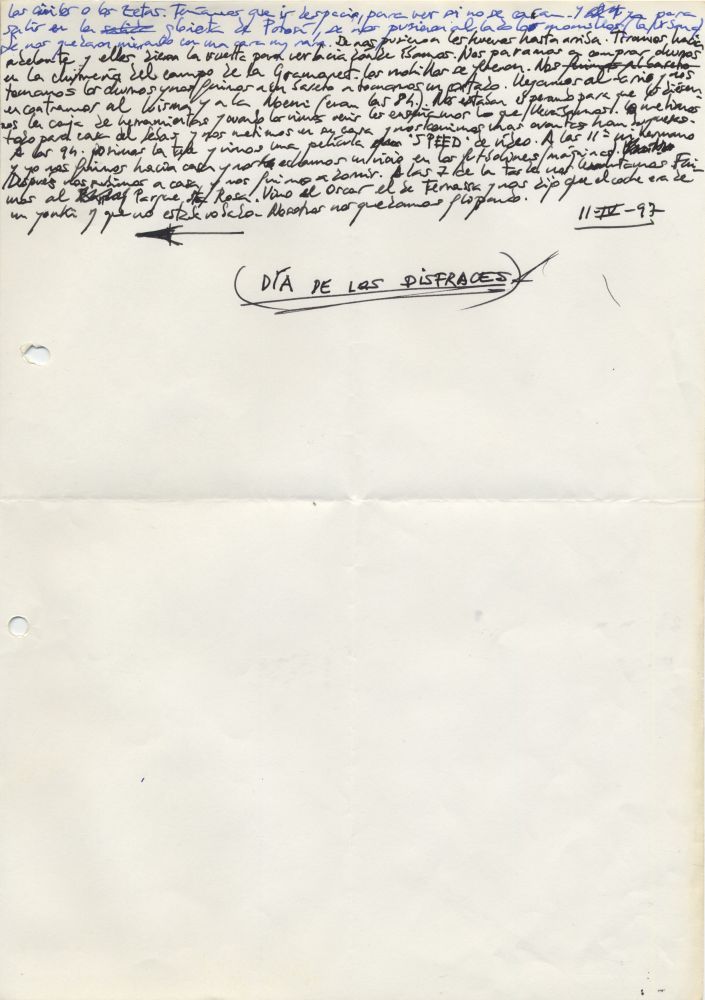 los civiles o los zetas. Teníamos que ir despacio, para ver si no se caían. Y ya para
salir en la Glorieta de Potosí, se nos pusieron al lado los
se nos quedaron mirando con una cara muy rara. Se nos pusieron los huevos hasta arriba. Tiramos hacia
adelante y ellos dieron la vuelta para ver hacia donde íbamos. Nos paramos a comprar churros
en la churrería del campo de la Gramanet. Los morillos se fueron. Nos fuimos al bareto
tomamos los churros y nos fuimos a un bareto a tomarnos un cortado. Llegamos al barrio y nos
encontramos al Luisma y a la Noemi (eran las 8h.) Nos estaban esperando para que les diésemos
la caja de herramientas y cuando los vimos venir les enseñamos lo que llevábamos. Lo metimos
todo para casa del y nos metimos en mi casa y nos comimos unas cuantas
A las 9h. pusimos la tele y vimos una película "SPEED" de vídeo. A las 11= mi hermano
y yo nos fuimos hacia casa y nos echamos un vicio en los futbolines/maquinas.
Después nos subimos a casa y nos fuimos a dormir. A las 7 de la tarde nos levantamos. Fui-
mos al Parque de Rosa. Vino el Oscar el de Terrassa y nos dijo que el coche era de
un yonki y que no estaba robado. Nosotros nos quedamos flipando.
11-IV-97
(DÍA DE LOS DISFRACES)